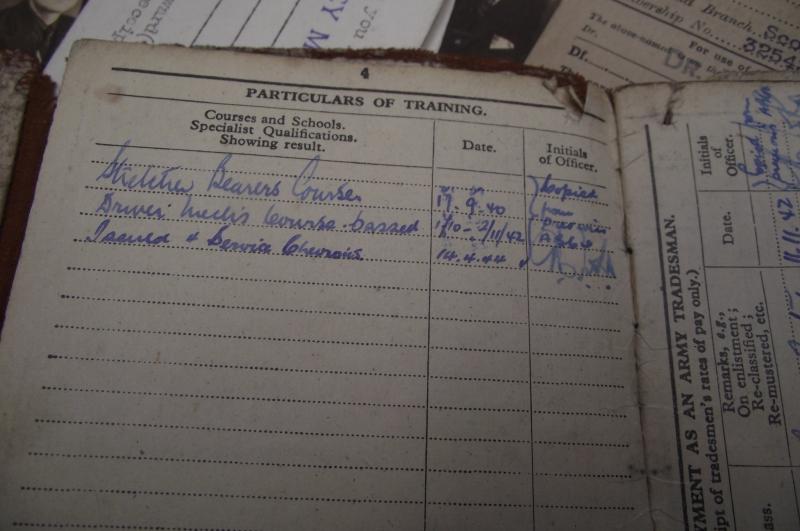 you
Y M
Branch. Sco
bership No. 3254
The above-named
Dr. For use o
Df. DR.
4
PARTICULARS OF TRAINING.
Courses and Schools.
Specialist Qualifications.
Showing result.
Date.
Initials
of Officer.
Stretcher Bearers Course 17. 9. 40 Copied
Driver Mech's Course. passed 1/10 - 2/11/42 from previous
Issued 4 Service Chevrons. 14.4.44
YMENT AS AN ARMY TRADESMAN.
ipt of tradesmen's rates of pay only.)
Remarks, e.g.,
On enlistment;
Re-classified;
Re-mustered, etc.
Date.
Initials
of
Officer.
11.11.42
ass.